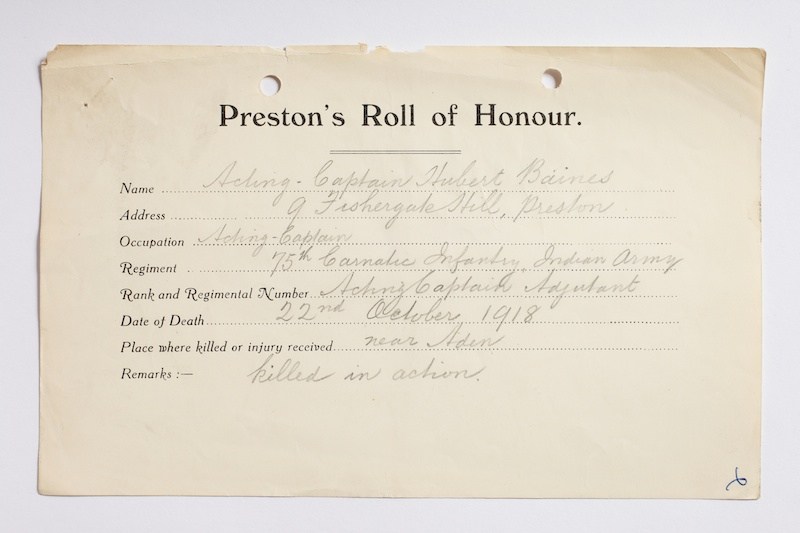 Preston's Roll of Honour.
Name Acting-Captain Hubert Baines
Address 9 Fishergate Hill, Preston
Occupation Acting-Captain
Regiment 75th Carnatic Infantry, Indian Army
Rank and Regimental Number Acting Captain Adjutant
Date of Death 22nd October 1918
Place where killed or injury received near Aden
Remarks :— killed in action.